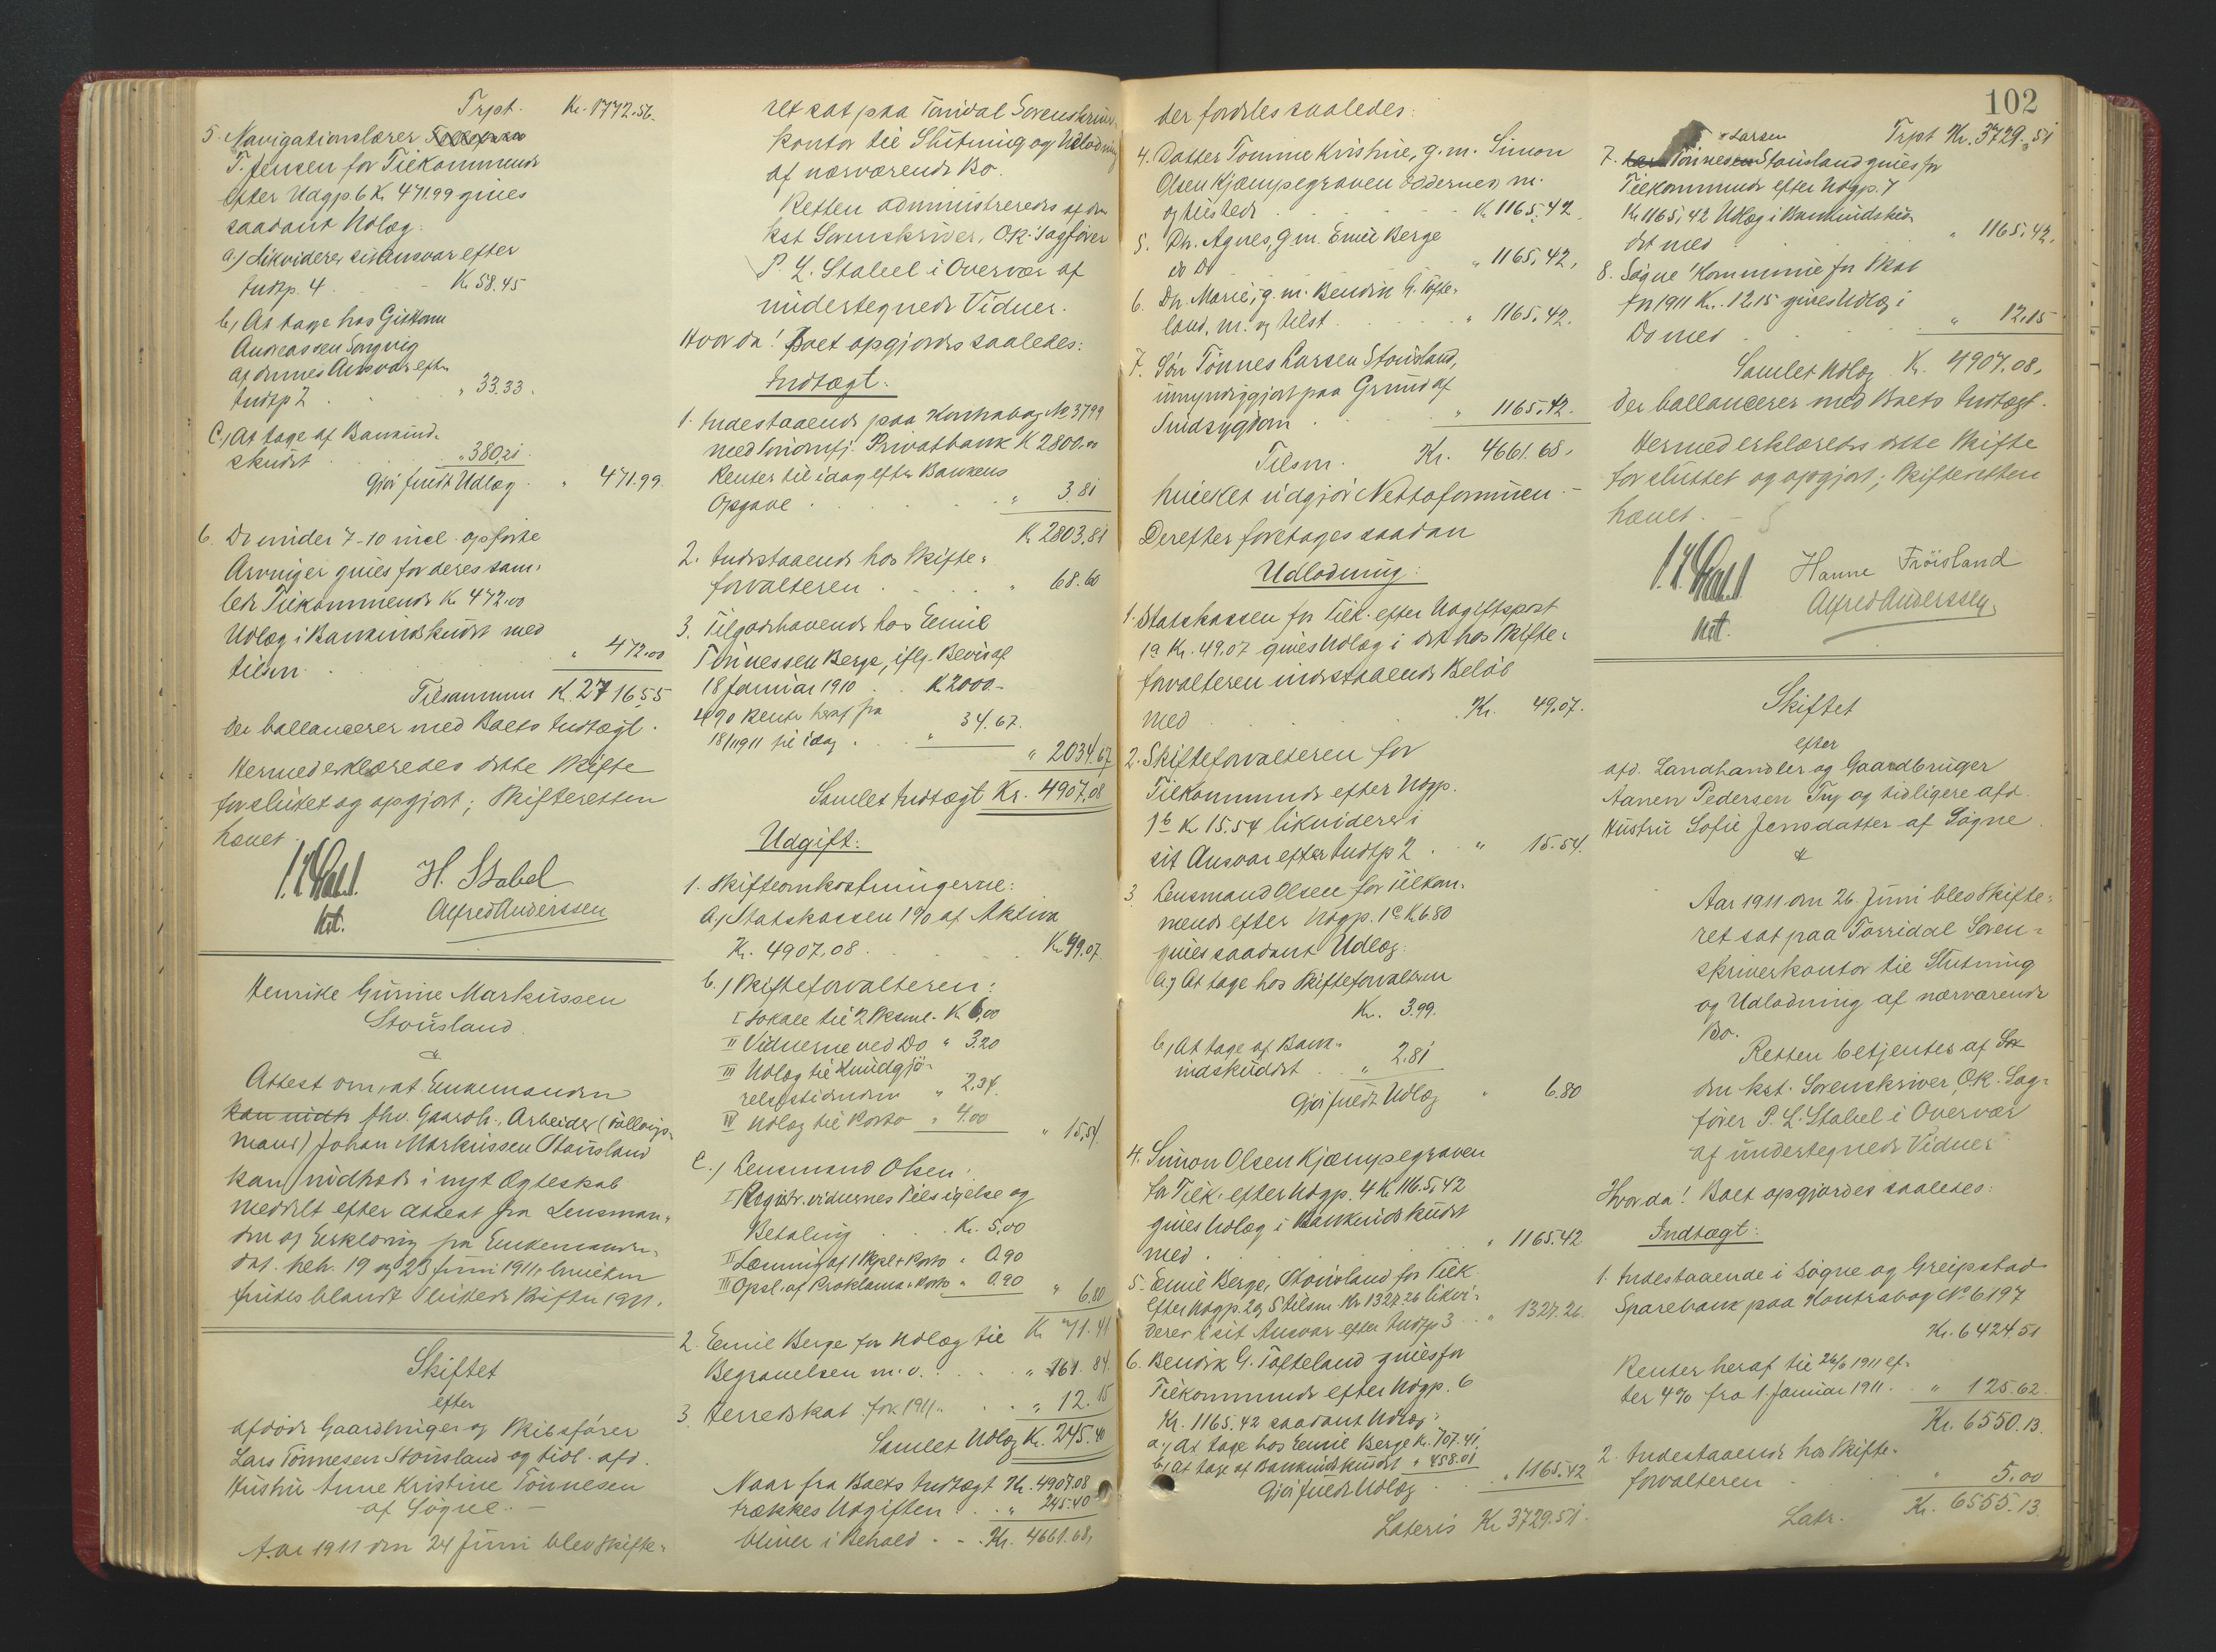 Trpt. Kr. 1772.56.
5. Navigationslærer
T. Jensen for Tilkommende
efter Udgp. 6 K 471.99 gives
saadant Udlæg:
a.) Likviderer sit Ansvar efter
Indtp. 4 K. 58.45
b.) At tage hos Gjætkona
Andreassen Songvig
af dennes Ansvar efter
Indtp 2 " 33.33.
C.) At tage af Bankind-
skudt " 380,21
Gjør fuldt Udlæg " 471.99.
6. De under 7-10 incl. opførte
Arvinger gives for deres sam-
lede Tilkommende K. 472.00
Udlæg i Bankindskudt med
tilsm. " 472.00
Tilsammen K. 2716,55
der ballancerer med Boets Indtægt.
Hermed erklæredes dette Skifte
for sluttet og opgjort; Skifteretten
hævet.
P. L. Stabel
kst.
H. Stabel
Alfred Anderssen
Henrike Gurine Markussen
Stousland.
&
Attest om, at Enkemanden
kan nidh fhv. Gaardb., Arbeider (Føllaugs-
mand) Johan Markussen Stousland
kan indtræde i nyt Ægteskab
meddelt efter Attest fra Lensman-
den og Erklæring fra Enkemanden
dat. heh. 19 og 23 Juni 1911, hvilken
findes blandt sluttede Skifter 1911.
Skiftet
efter
afdøde Gaardbruger og Skibsfører
Lars Tønnesen Stousland og tidl. afd.
Hustru Anne Kristine Tønnesen
af Søgne. –
Aar 1911 den 24 Juni blev Skifte-
ret sat paa Torridal Sorenskriver-
kontor til Slutning og Udlodning
af nærværende Bo.
Retten administreredes af den
kst Sorenskriver, O.R. Sagfører
P. L. Stabel i Overvær af
undertegnede Vidner.
Hvorda! Boet opgjordes saaledes:
Indtægt:
1. Indestaaende paa Kontrabog No 3799
med Privatbank K 2800.00
Renter til idag efter Bankens
Opgave " 3.81
K. 2803.81
2. Indestaaende hos Skifte-
forvalteren " 68.60
3. Tilgodehavende hos Emil
Tönnessen Berge, iflg. Bevis af
18 Januar 1910 K 2000.-
4% Rente heraf fra
18/1 1911 til idag " 34.67.
" 2034.67
Samlet Indtægt Kr. 4907,08
Udgift:
1. Skifteomkostningerne:
a.) Statskassen 1% af Aktiva
Kr. 4907,08 Kr. 49.07.
b.) Skifteforvalteren:
I Lokale til 2 Sksml. K. 6,00
II Vidnerne ved Do " 3.20
III Udlæg til Kundgjö-
relsestidenden " 2,34
IV Udlæg til Porto " 4.00
" 15,54
C.) Lensmand Olsen:
I Registr. vidnernes Tilsigelse og
Betaling Kr. 5,00
II Læsning af 1 Skpl + Porto " 0.90
III Opsl. af Proklama + Porto " 0.90
" 6.80
Kr. 71.41
2. Emil Berge for Udlæg til
Begravelsen m.v. " 161.84
3. Herredskat for 1911 " 12.15
Samlet Udlæg Kr. 245.40
Naar fra Boets Indtægt Kr. 4907.08
trækkes Udgiften " 245.40
bliver i Behold Kr. 4661.68,
der fordeles saaledes:
4. Datter Tomine Kristine, g.m. Simon
Olsen Kjæmpegraven Oddernes m.
og tilstede K. 1165,42.
5. Dr. Agnes, g m. Emil Berge
do Do " 1165,42,
6. Dr. Marie, g. m. Bendik G. Töfte-
land, m. og tilst. " 1165,42.
7. Søn Tønnes Larsen Stousland,
umyndiggjort paa Grund af
Sindsygdom " 1165,42.
Tilsm. Kr. 4661.68,
hvilket udgjør Nettoformuen. –
Derefter foretages saadan
Udlodning:
1. Statskassen for Tilk. efter Udgiftspost
1a Kr. 49.07 gives Udlæg i det hos Skifte-
forvalteren indestaaende Beløb
med Kr. 49,07.
2. Skifteforvalteren for
Tilkommende efter Udgp.
1b K 15.54 likviderer i
sit Ansvar efter Indtp 2 " 15.54.
3. Lensmand Olsen for Tilkom-
mende efter Udgp. 1c K 6.80
gives saadant Udlæg:
a.) At tage hos Skifteforvalteren
Kr. 3.99.
b.) At tage af Bank-
indskuddet " 2.81
Gjør fuldt Udlæg " 6.80
4. Simon Olsen Kjæmpegraven
for Tilk. efter Udgp. 4 K 1165,42
gives Udlæg i Bankindskudt
med " 1165.42
5. Emil Berge, Stousland for Tilk.
efter Udgp. 2 og 5 tilsm. Kr 1327.26 likvi-
derer i sit Ansvar efter Indtp 3 " 1327.26
6. Bendik G. Töfteland gives for
Tilkommende efter Udgp. 6
Kr. 1165.42 saadant Udlæg:
a.) At tage hos Emil Berge Kr. 707.41,
b.) At tage af Bankindskudt " 458.01
Gjör fuldt Udlæg " 1165.42
Lateris Kr. 3729.51.
102
Larsen Trpt Kr. 3729.51
7. Tönnesen Stousland gives for
Tilkommende efter Udgp. 7
Kr. 1165,42 Udlæg i Bankindsku-
dt med " 1165,42,
8. Søgne Kommune for Skat
for 1911 Kr. 12.15 gives Udlæg i
Do med " 12.15
Samlet Udlæg Kr. 4907,08,
der ballancerer med Boets Indtægt.
Hermed erklæredes dette Skifte
for sluttet og opgjort; Skifteretten
hævet. –
P. L. Stabel
kst.
Hanne Fröisland
Alfred Anderssen
Skiftet
efter
afd. Landhandler og Gaardbruger
Aanen Pedersen Try og tidligere afd.
Hustru Sofie Jensdatter af Søgne
&
Aar 1911 den 26. Juni blev Skifte-
ret sat paa Torridal Soren-
skriverkontor til Slutning
og Udlodning af nærværende
Bo.
Retten betjentes af
den kst. Sorenskriver, O.R. Sag-
fører P. L. Stabel i Overvær
af undertegnede Vidner
Hvorda! Boet opgjordes saaledes:
Indtægt:
1. Indestaaende i Søgne og Greipstad
Sparebank paa Kontrabog No 6197
Kr. 6424.51
Renter heraf til 26/6 1911 ef-
ter 4% fra 1. Januar 1911 " 125.62.
Kr. 6550.13.
2. Indestaaende hos Skifte-
forvalteren " 5.00
Latr. Kr. 6555.13.